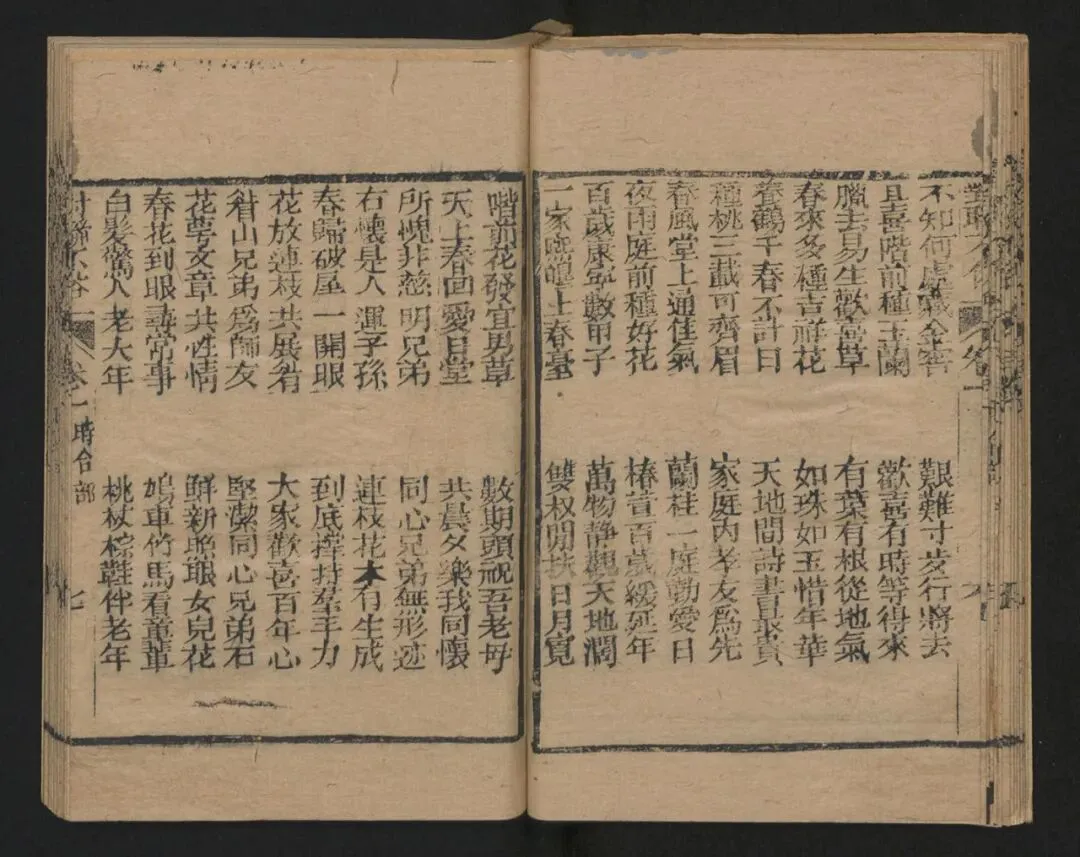 對聯不俗 卷一
不知何處藏金窖 艱難寸步行將去
且喜階前種玉蘭 歡喜有時等得來
臘去易生歡喜草 有葉有根從地氣
春來多種吉祥花 如珠如玉惜年華
養鶴千春不計日 天地間詩書最貴
種桃三載可齊眉 家庭內孝友爲先
春風堂上通佳氣 蘭桂一庭勤愛日
夜雨庭前種好花 椿萱百歲緩延年
百歲康寧數甲子 萬物靜觀天地濶
一家熙皥上春臺 雙杖閒扶日月寬
階前花發宜男草 數期頭祝吾老母
天上春回愛日堂 共晨夕樂我同懷
所愧非慈明兄弟 同心兄弟無形迹
右懷是人運子孫 連枝花木有生成
春歸破屋一開眼 到底撑持羣手力
花放連枝共展眉 大家歡喜百年心
眷山兄弟爲師友 堅潔同心兄弟石
花萼文章共性情 鮮新照眼女兒花
春花到眼尋常事 鳩車竹馬看童輩
白髮驚人老大年 桃杖棕鞋伴老年
對聯不俗 卷一 時合部 七